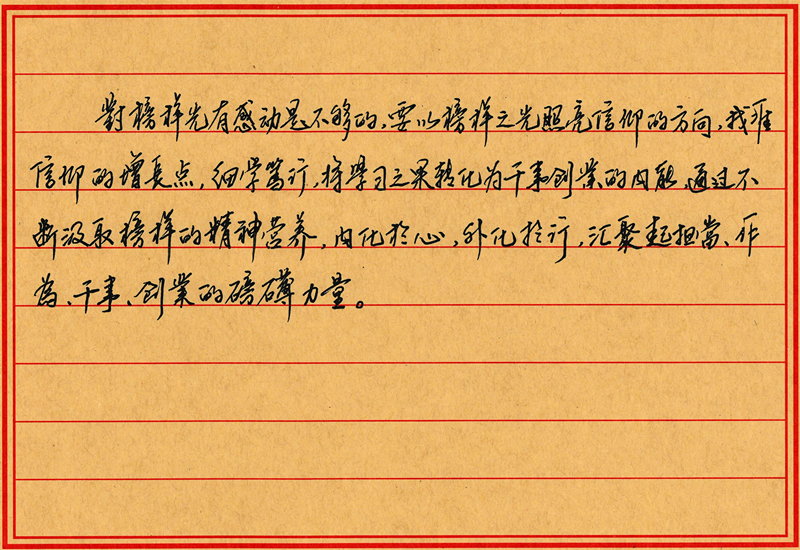 對榜样光有感动是不够的,要以榜样之光照亮信仰的方向,找准
信仰的增長点,细学篤行,将學习之果转化为干事创業的内能,通过不
断汲取榜样的精神营养,内化於心,外化於行,汇聚起担當、作
為、干事、创業的磅礴力量。